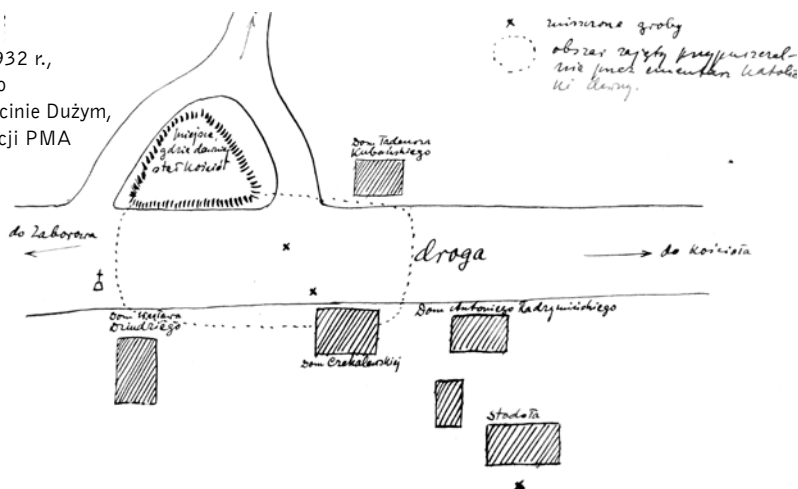 932 r.,
o
cinie Dużym,
cji PMA
x zniszczone groby
obszar zajęty przypuszczal-
nie przez cmentarz katolic
ki dawny.
miejsce,
gdzie dawniej
stał kościół
Dom Tadeusza
Kubalskiego
do Zaborowa
droga
do kościoła
Dom
Dom Antoniego
Dom Czekalewskiej
Stodoła